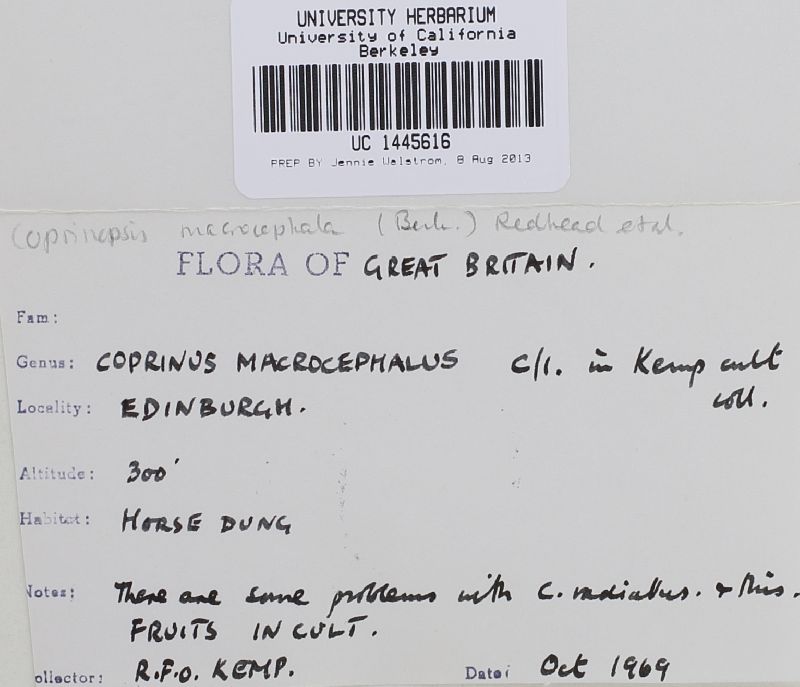 UNIVERSITY HERBARIUM
University of California
Berkeley
UC 1445616
PREP BY Jennie Walstrom, 8 Aug 2013
Coprinopsis macrocephala (Berk.) Redhead et al.
FLORA OF GREAT BRITAIN.
Fam:
Genus: COPRINUS MACROCEPHALUS C/1. in Kemp cult coll.
Locality: EDINBURGH.
Altitude: 300'
Habitat: HORSE DUNG
Notes: There are some problems with C. radiatus. & this.
FRUITS IN CULT.
ollector: R.F.O. KEMP. Date: Oct 1969